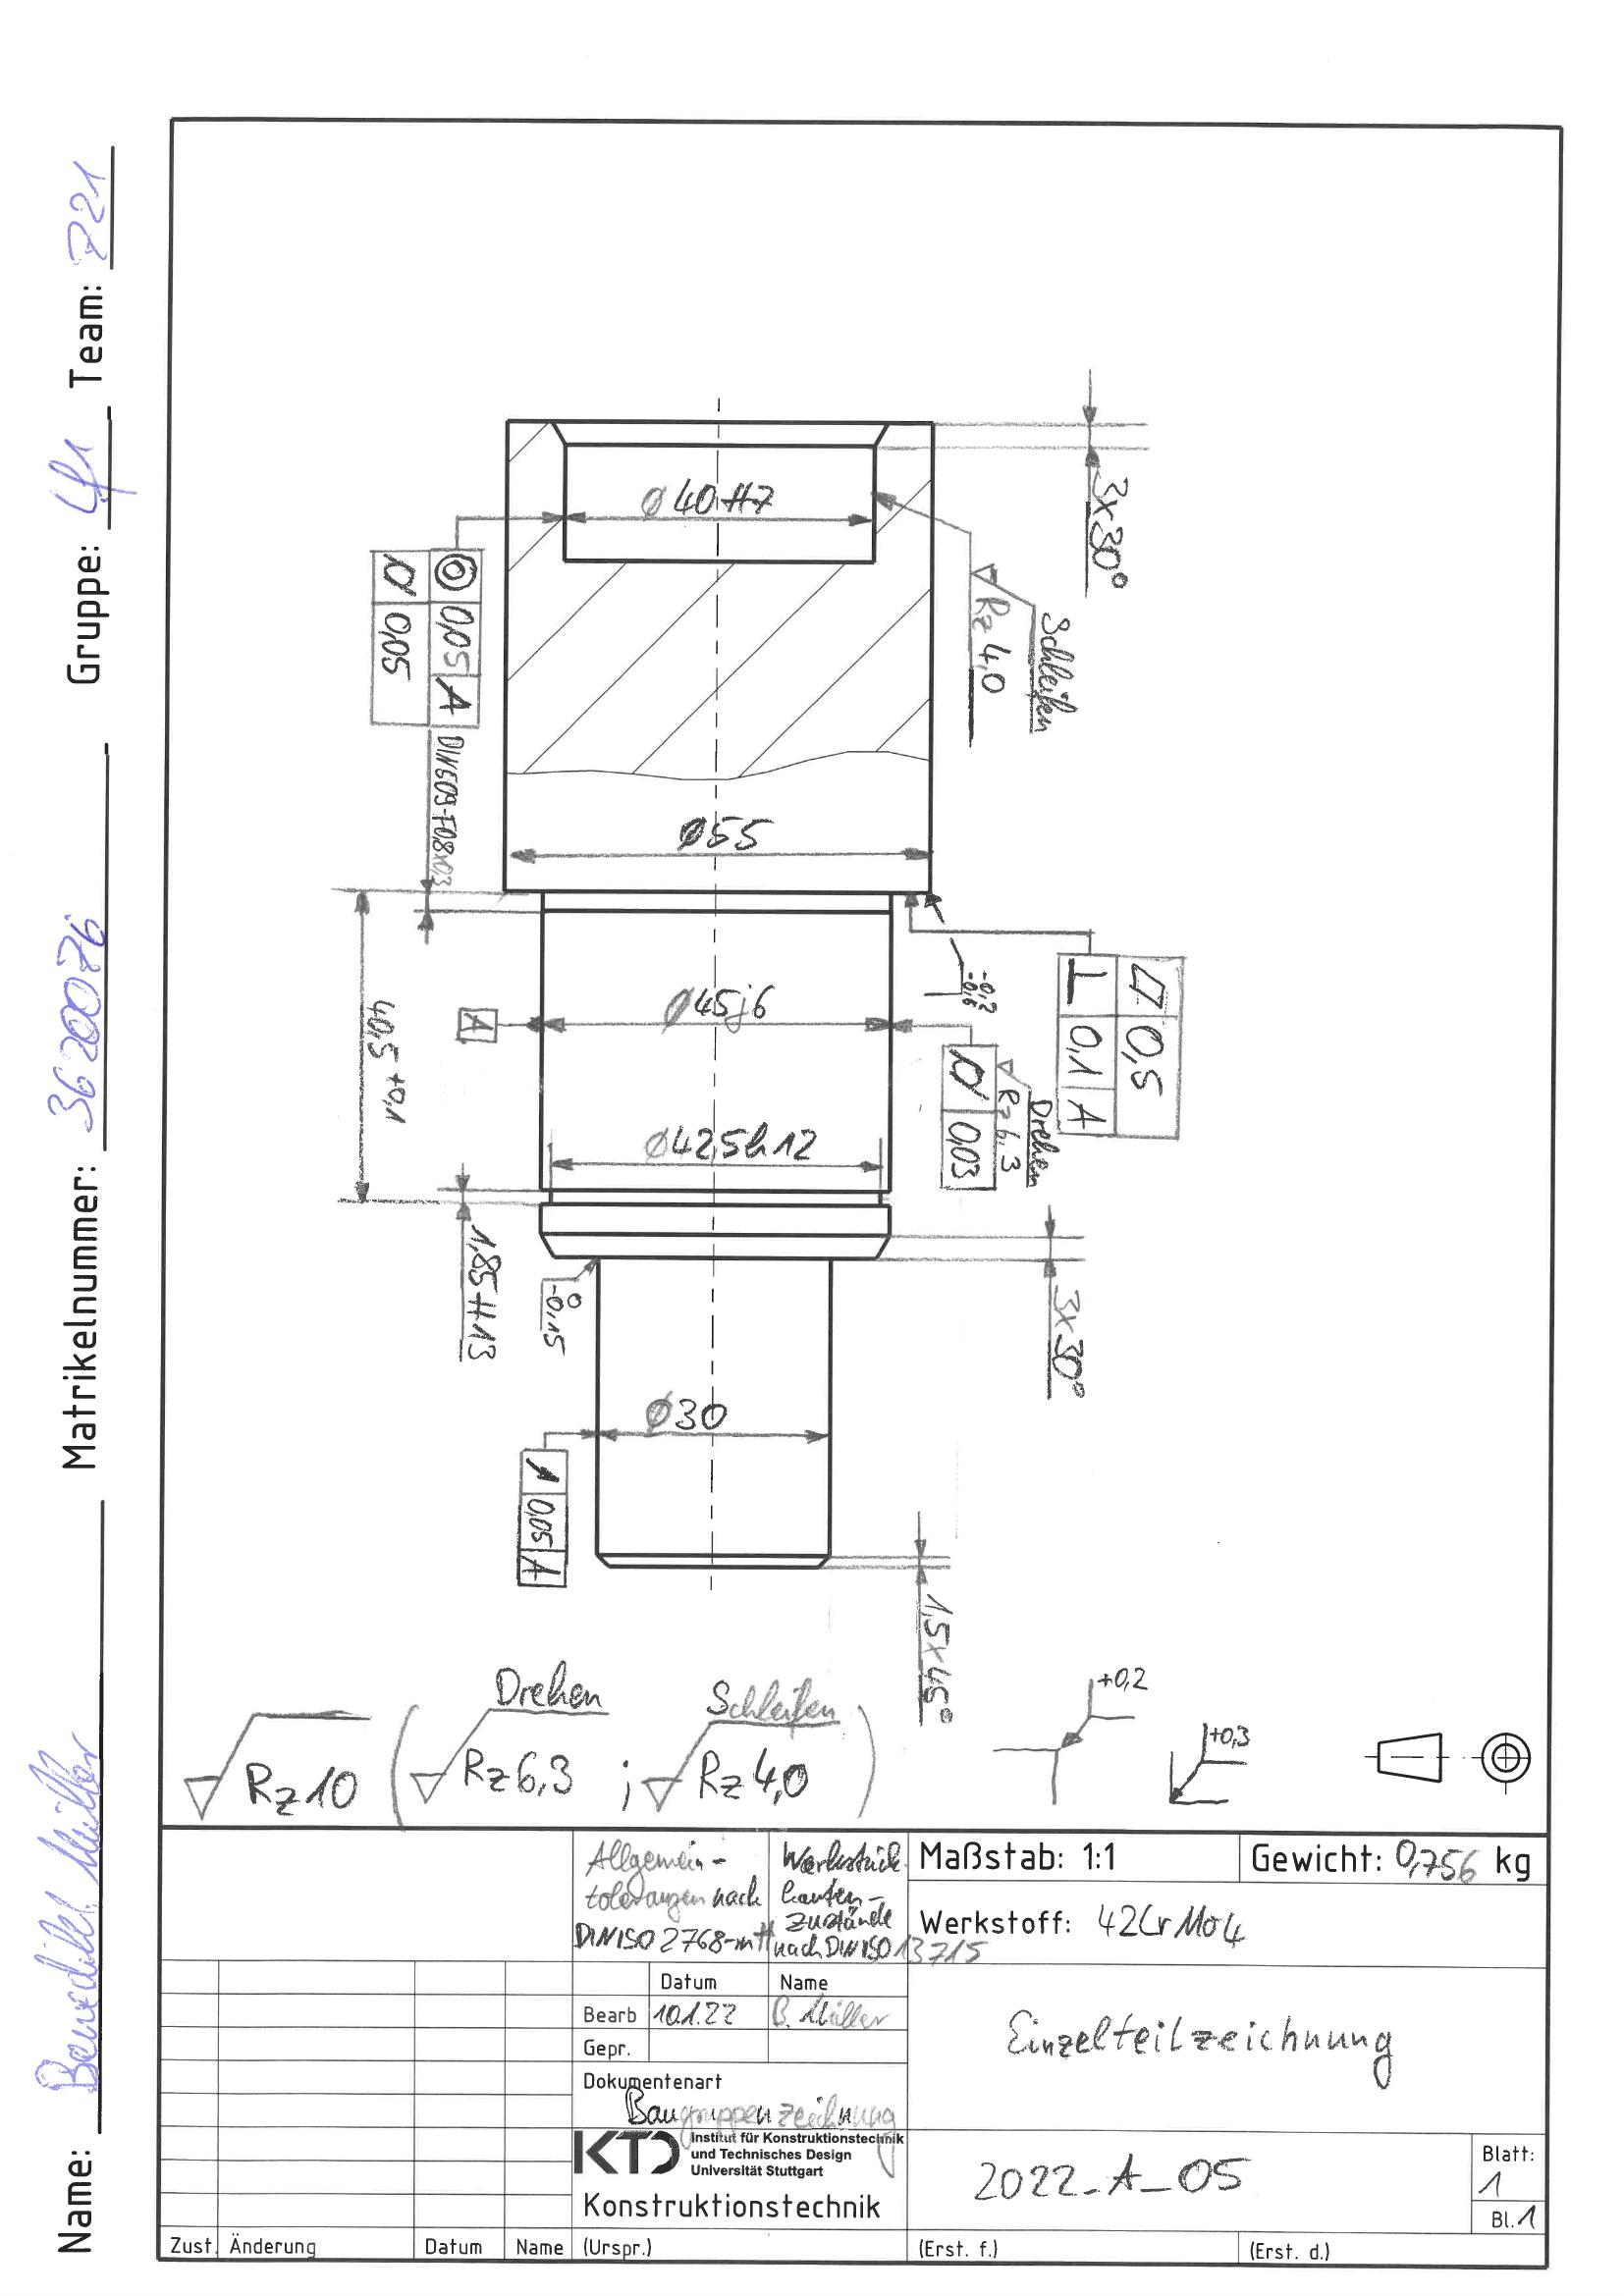 Name: Benedikt Müller Matrikelnummer: 3620076 Gruppe: 41 Team: Z21
3x30°
⌀40 H7
◎ 0,05 A
⌭ 0,05
Schleifen
Rz 4,0
DIN509-F0,8x0,3
⌀55
-0,2
-0,6
⏥ 0,5
⊥ 0,1 A
⌀45j6
A
40,5 +0,1
Drehen
Rz 6,3
⌭ 0,03
⌀42,5h12
1,85 H13
0
-0,15
3x30°
⌀30
↗ 0,05 A
1,5x45°
Rz 10 ( Drehen Rz 6,3 ; Schleifen Rz 4,0 )
+0,2
+0,3
Allgemein-
toleranzen nach
DIN ISO 2768-mH
Werkstück
kanten-
zustände
nach DIN ISO 13715
Maßstab: 1:1
Gewicht: 0,756 kg
Werkstoff: 42CrMo4
Datum Name
Bearb 10.1.22 B. Müller
Gepr.
Einzelteilzeichnung
Dokumentenart
Baugruppenzeichnung
KTD Institut für Konstruktionstechnik
und Technisches Design
Universität Stuttgart
Konstruktionstechnik
2022_A_05
Blatt:
1
Bl. 1
Zust. Änderung Datum Name (Urspr.) (Erst. f.) (Erst. d.)